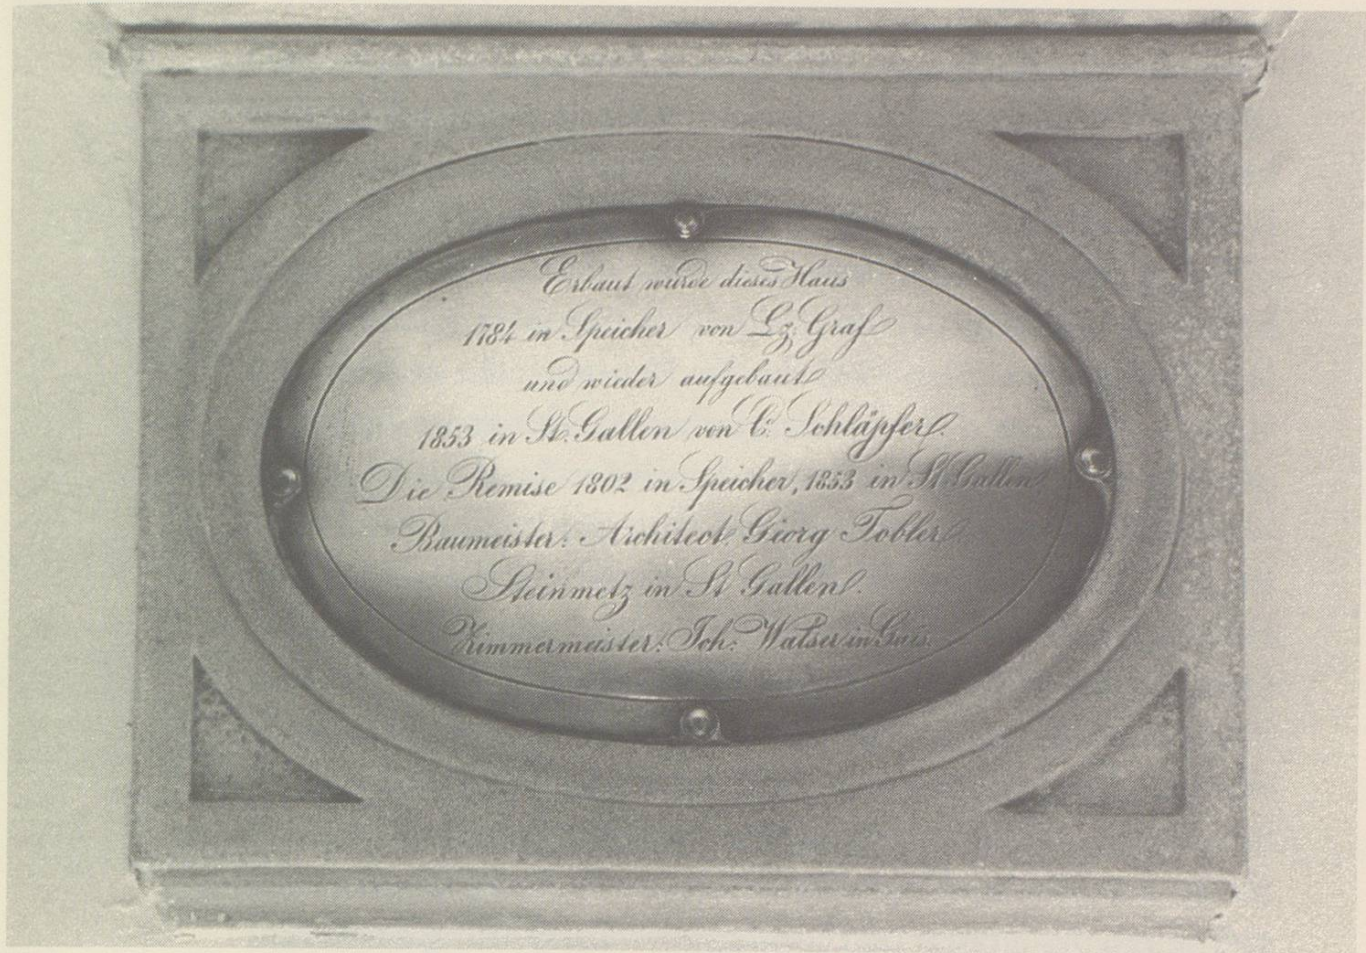 Erbaut wurde dieses Haus
1784 in Speicher von Lz. Graf
und wieder aufgebaut
1853 in St. Gallen von C. Schläpfer.
Die Remise 1802 in Speicher, 1853 in St. Gallen
Baumeister: Architect Georg Tobler
Steinmetz in St Gallen.
Zimmermeister: Joh: Walser in Gais.